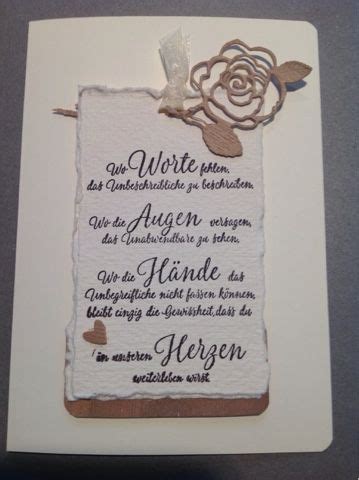 Wo Worte fehlen,
das Unbeschreibliche zu beschreiben,
Wo die Augen versagen,
das Unabwendbare zu sehen,
Wo die Hände das
Unbegreifliche nicht fassen können,
bleibt einzig die Gewissheit, dass du
in unseren Herzen
weiterleben wirst.